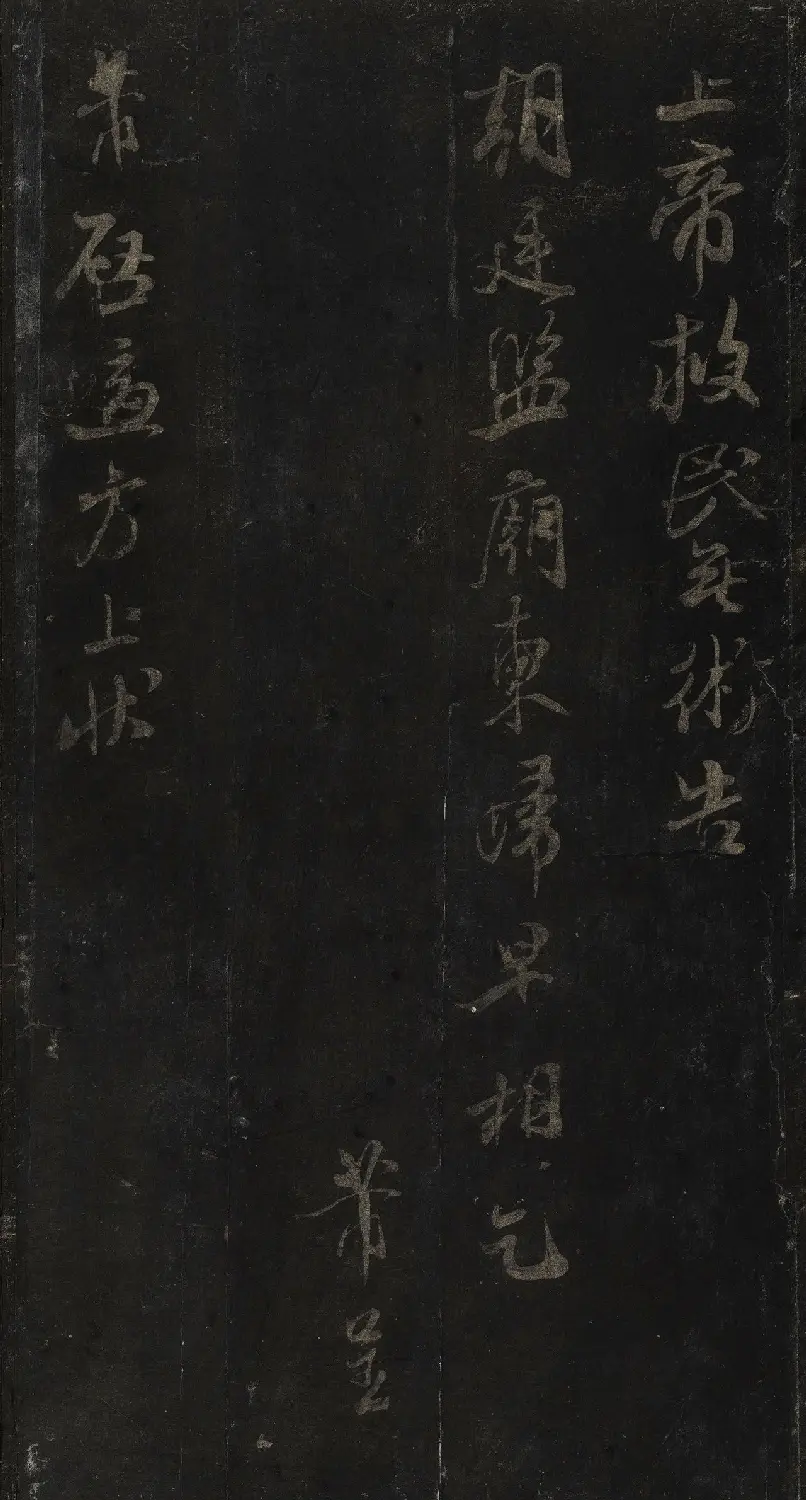 上帝救民無術告
朝廷監廟東歸早相乞
芾呈
芾啓適方上狀